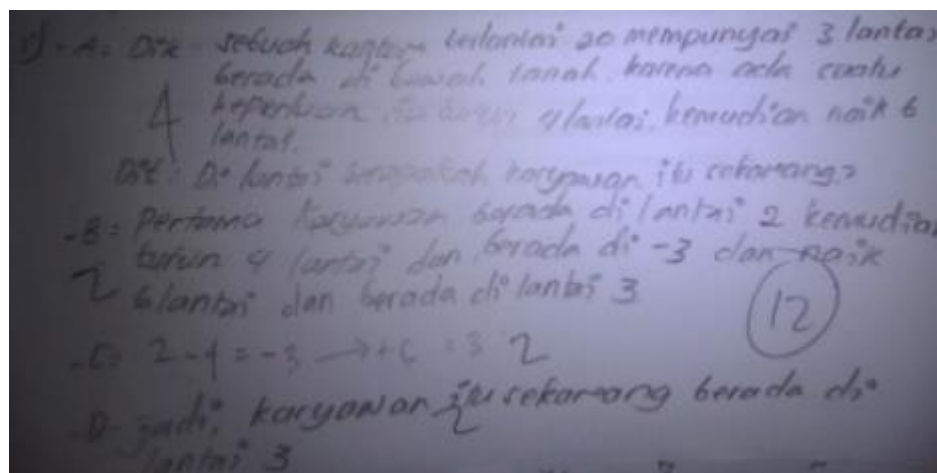 1) - A: Dik sebuah kantor berlantai 20 mempunyai 3 lantai
berada di bawah tanah. karena ada suatu
4 keperluan turun 4 lantai. kemudian naik 6
lantai.
Dit: Di lantai berapakah karyawan itu sekarang?
- B: Pertama karyawan berada di lantai 2 kemudian
turun 4 lantai dan berada di -3 dan naik
2 6 lantai dan berada di lantai 3
12
- C: 2 - 4 = -3 → + 6 = 3 2
- D jadi, karyawan itu sekarang berada di
2
lantai 3